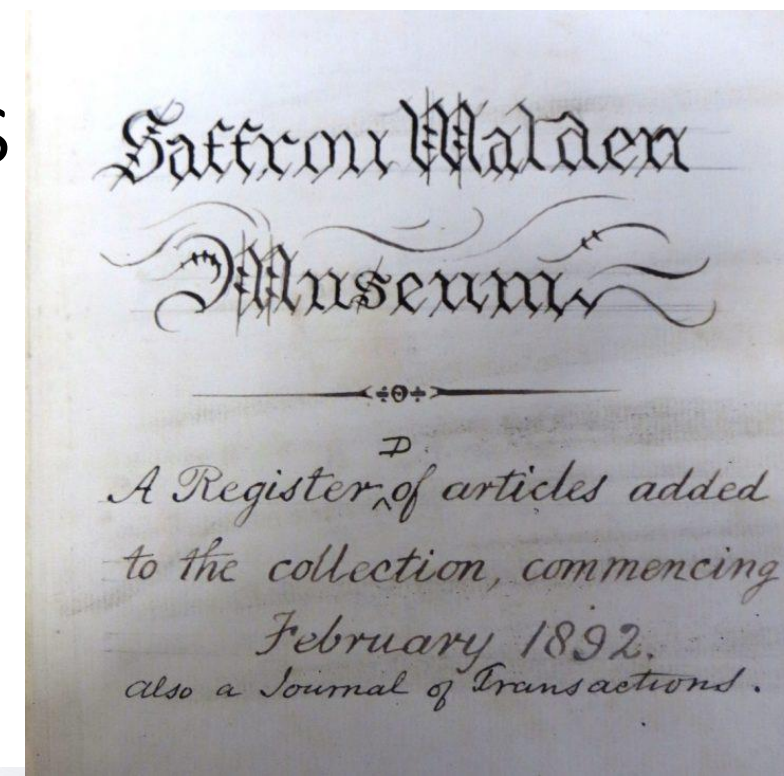 s
Saffron Walden
Museum.
D
A Register ^ of articles added
to the collection, commencing
February 1892.
also a Journal of Transactions.